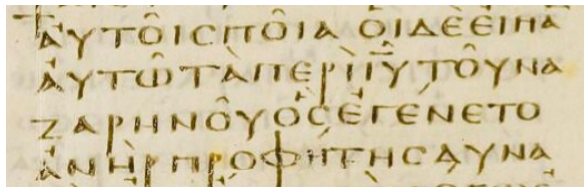 ΑΥ̓ΤΟΙ͂ϹΠΟΙ͂Α ΟἹΔῈΕἾΠΑ̅
ΑΥ̓ΤΩ͂ΤᾺΠΕΡῚΙ̅Υ̅ΤΟΥ͂ΝΑ
ΖΑΡΗΝΟΥ͂ὍϹἘΓΈΝΕΤΟ
ἈΝῊΡΠΡΟΦΉΤΗϹΔΥΝΑ